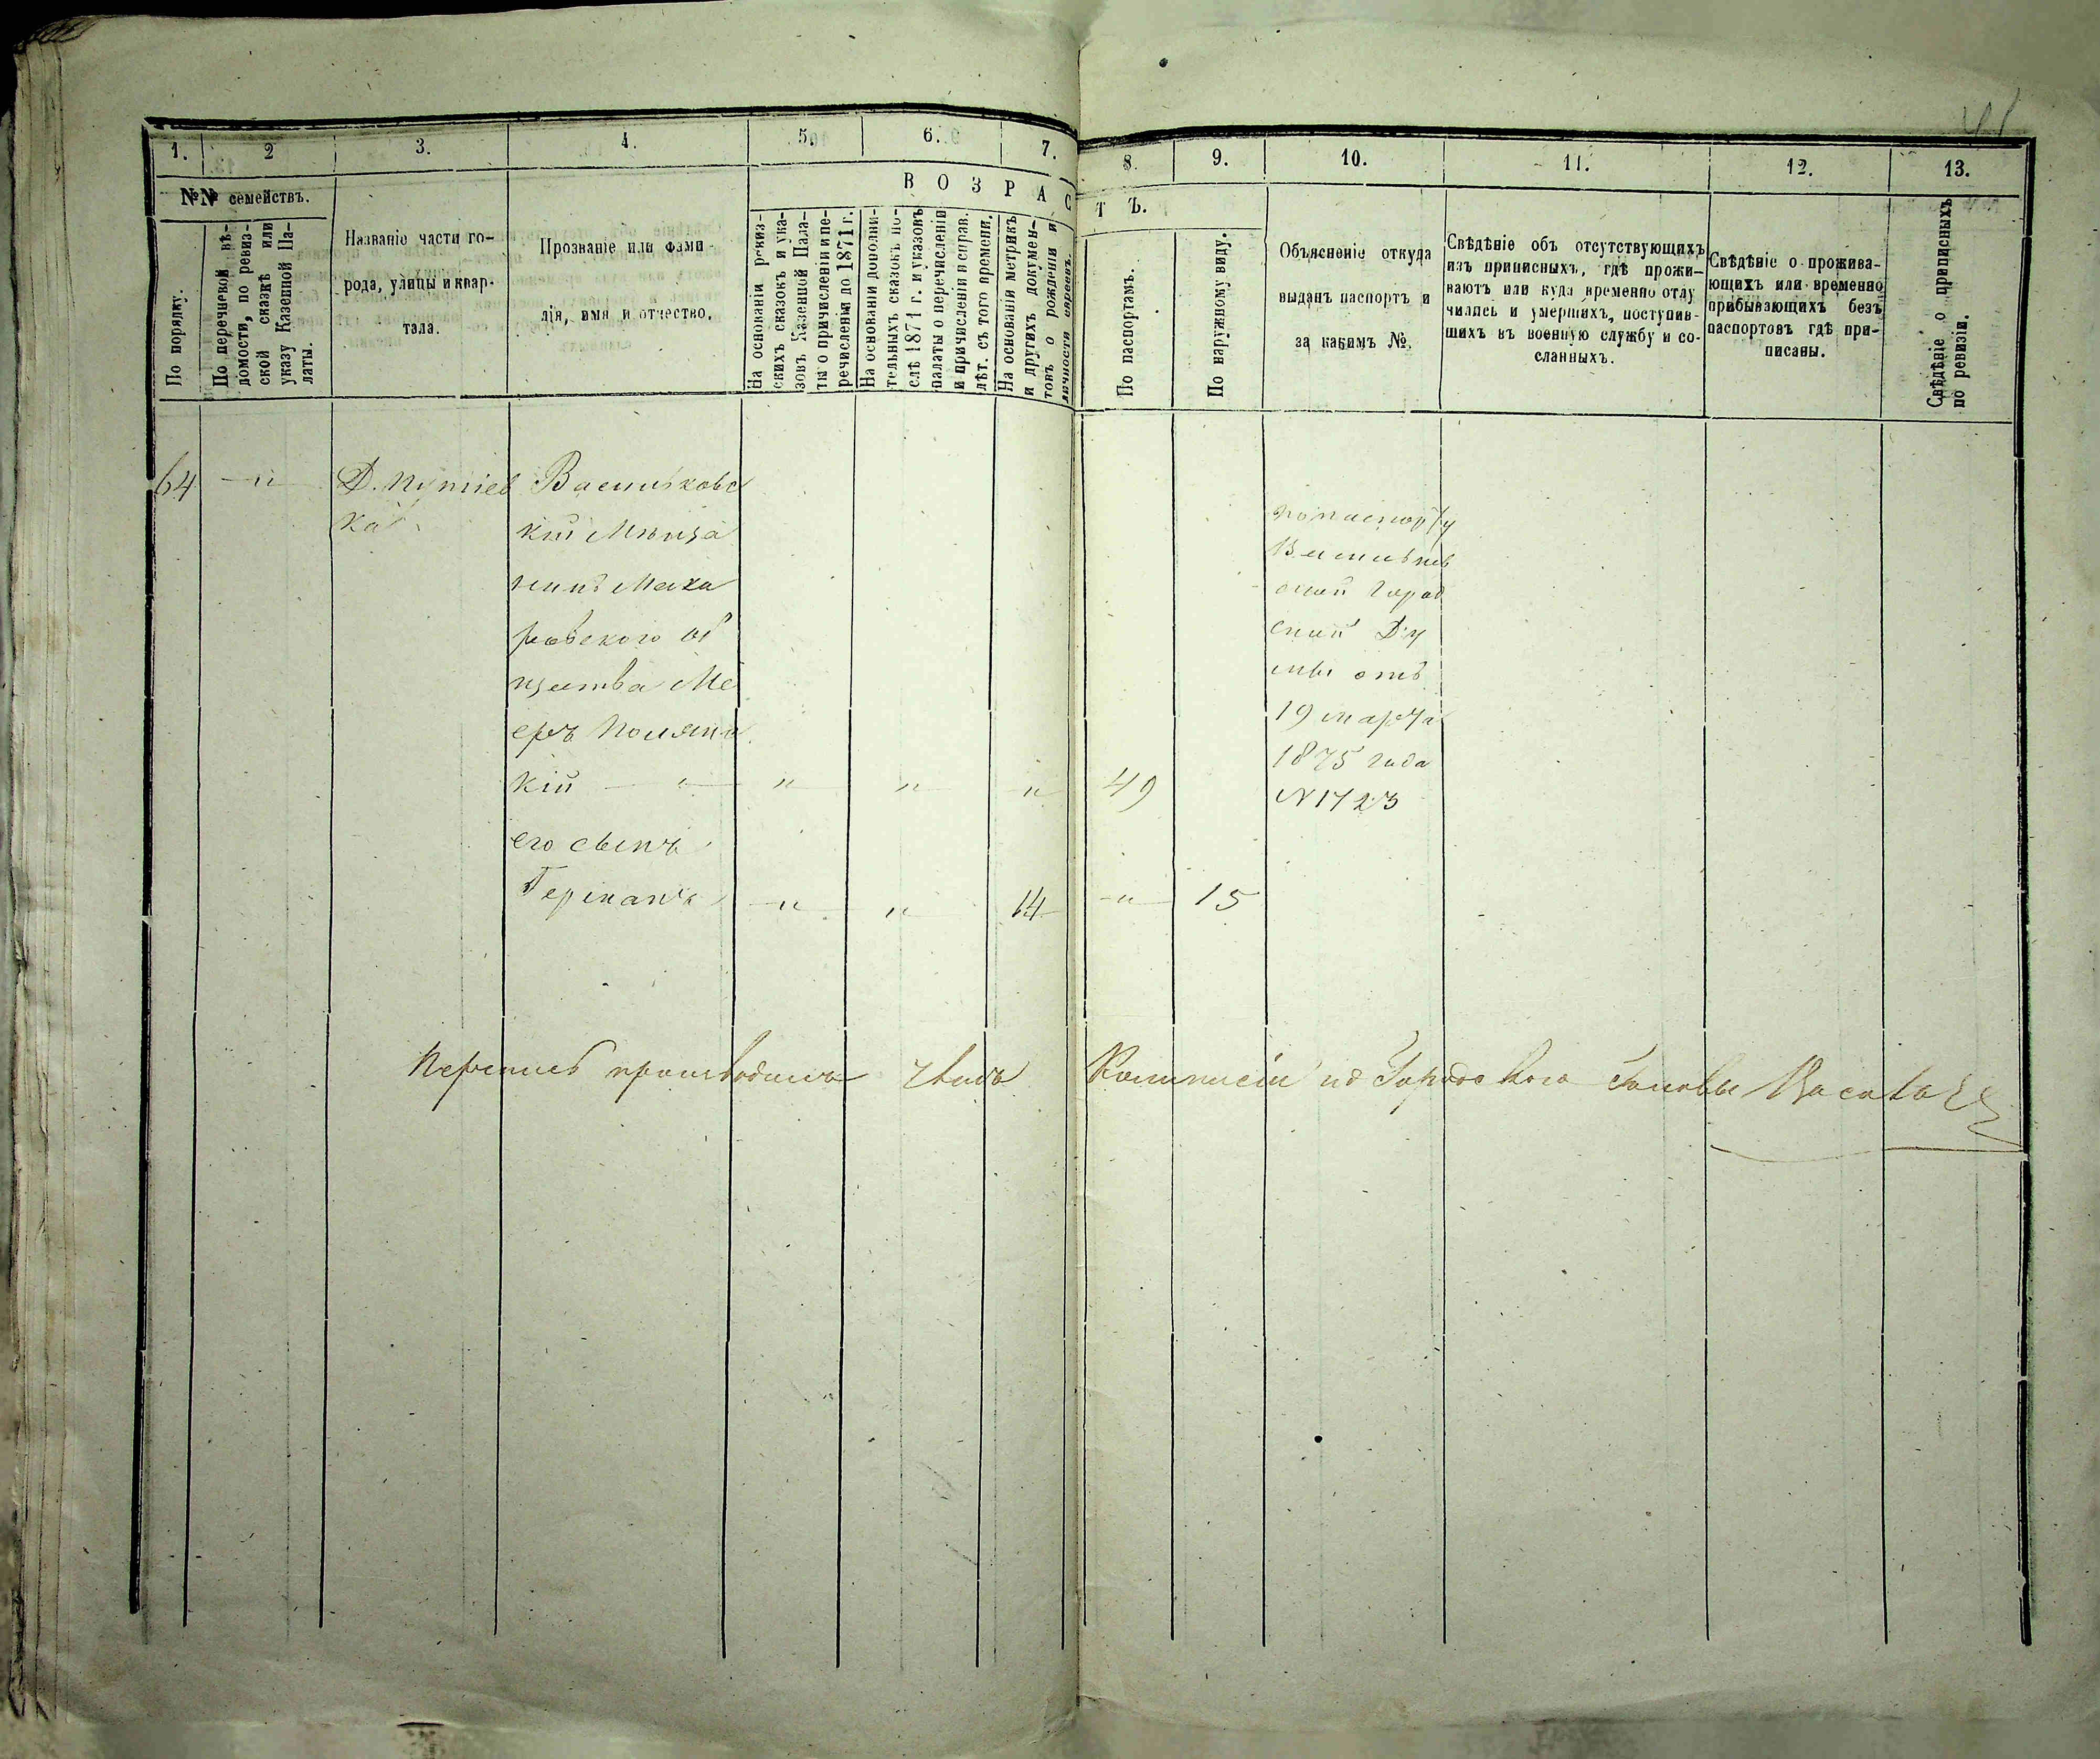 41
1. 2 3. 4. 5. 6. 7. 8. 9. 10. 11. 12. 13.
№№ семействъ.
ВОЗРАСТЪ.
По порядку.
По перечневой вѣ-
домости, по ревиз-
ской сказкѣ или
указу Казенной Па-
латы.
Названіе части го-
рода, улицы и квар-
тала.
Прозваніе или фами-
лія, имя и отчество.
На основаніи ревиз-
скихъ сказокъ и ука-
зовъ Казенной Пала-
ты о причисленіи и пе-
речисленіи до 1871 г.
На основаніи дополни-
тельныхъ сказокъ по-
слѣ 1871 г. и указовъ
палаты о перечисленіи
и причисленіи и справ.
лѣт. съ того времени.
На основаніи метрикъ
и другихъ докумен-
товъ о рожденіи и
личности евреевъ.
По паспортамъ.
По наружному виду.
Объясненіе откуда
выданъ паспортъ и
за какимъ №.
Свѣдѣніе объ отсутствующихъ
изъ приписныхъ, гдѣ прожи-
ваютъ или куда временно отлу
чились и умершихъ, поступив-
шихъ въ военную службу и со-
сланныхъ.
Свѣдѣніе о прожива-
ющихъ или временно
прибывающихъ безъ
паспортовъ гдѣ при-
писаны.
Свѣдѣніе о приписныхъ
по ревизіи.
64 — " — Д. Путіев
ка
Васильковс
кій Мѣща
нинъ Мака
ровского об
щества Ме
еръ Поляно
кій — " — " — " — " 49
его сынъ
Германъ — " — " — 14 — " — 15
по паспорту
Васильков
ской Город
ской Ду
мы отъ
19 марта
1875 года
№ 1723
Перепись производилъ членъ Коммисіи Городского Головы